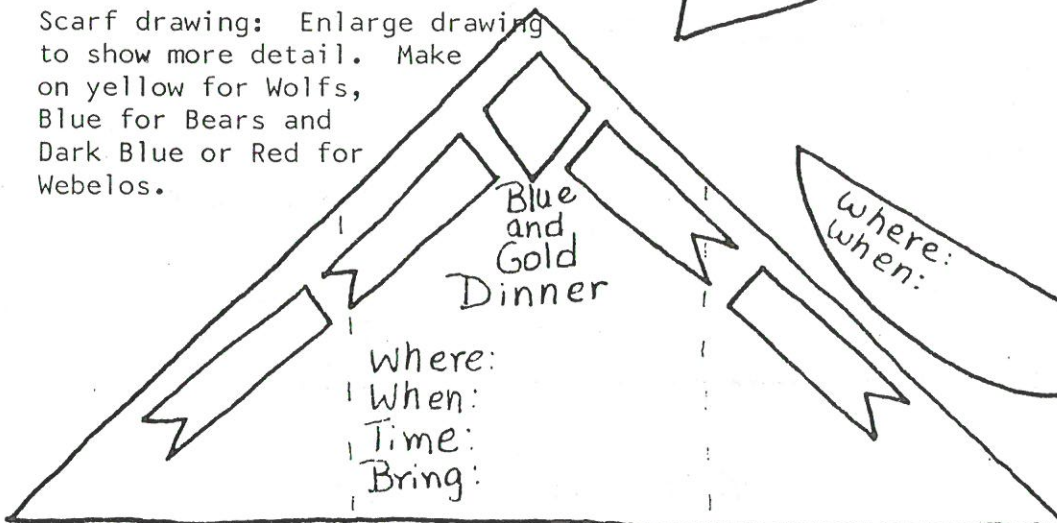 Scarf drawing: Enlarge drawing
to show more detail. Make
on yellow for Wolfs,
Blue for Bears and
Dark Blue or Red for
Webelos.
Blue
and
Gold
Dinner
Where:
When:
Time:
Bring:
where:
when: